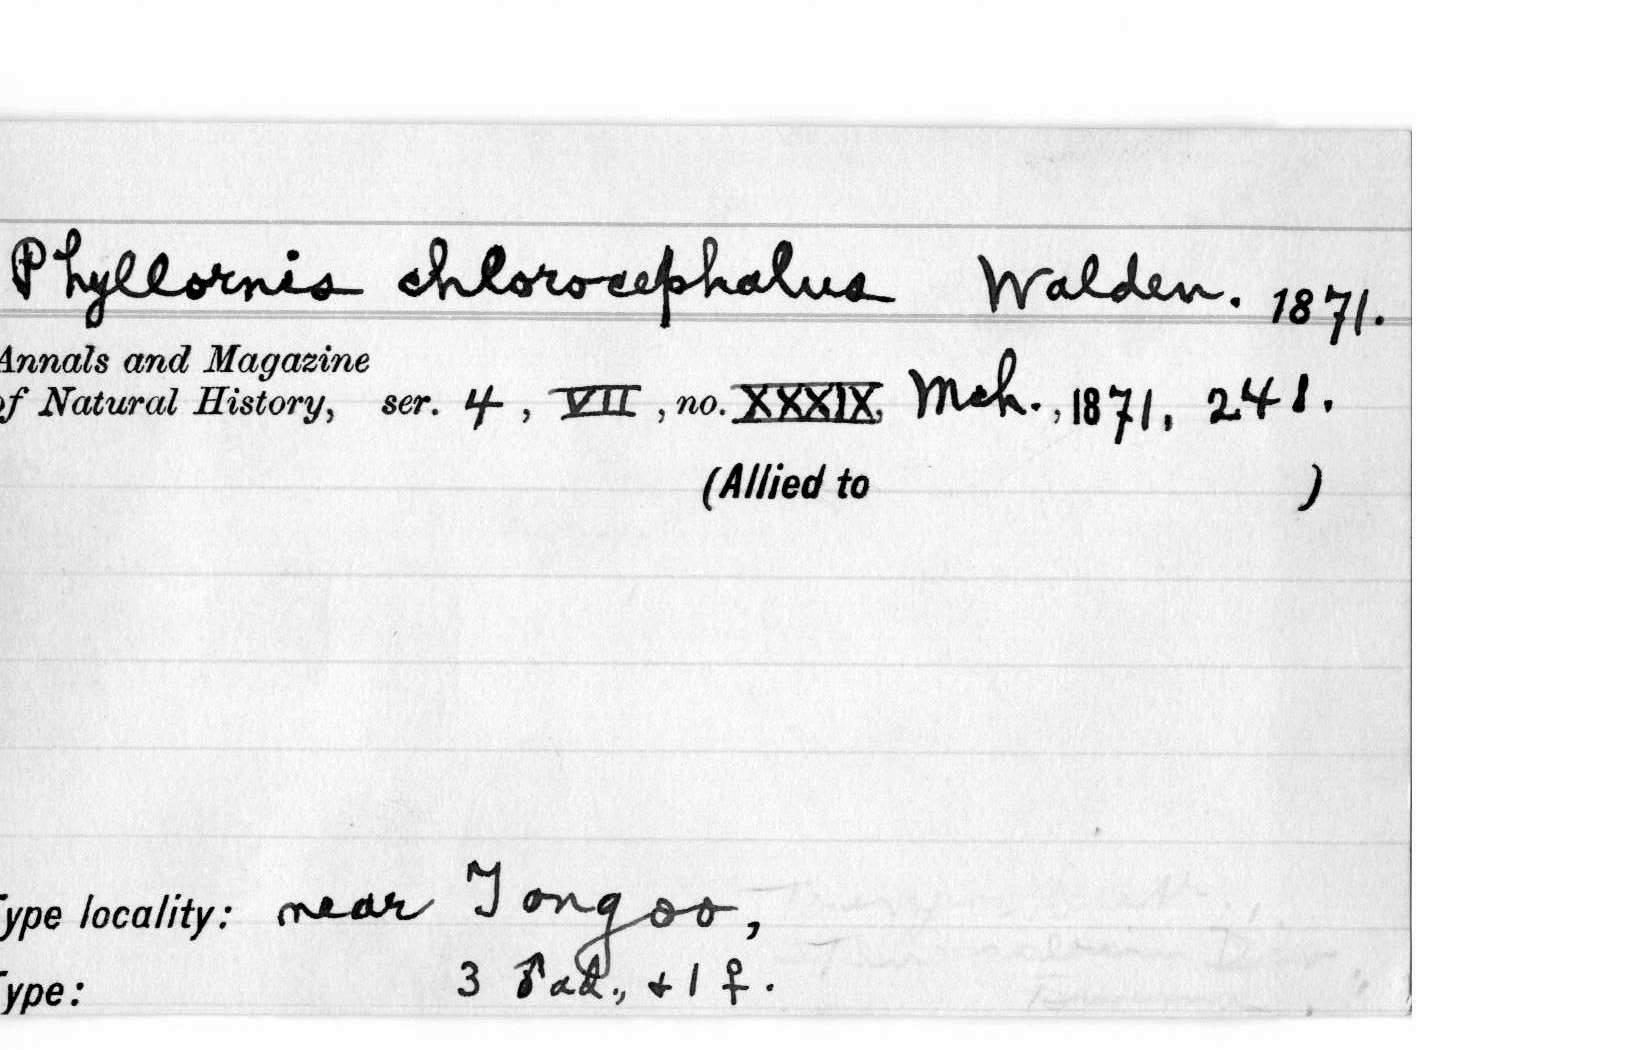 Phyllornis chlorocephalus Walden. 1871.
Annals and Magazine
of Natural History, ser. 4, VII, no. XXXIX, Mch., 1871, 241.
(Allied to )
Type locality: near Tongoo,
Type: 3 ♂ ad., + 1 ♀.